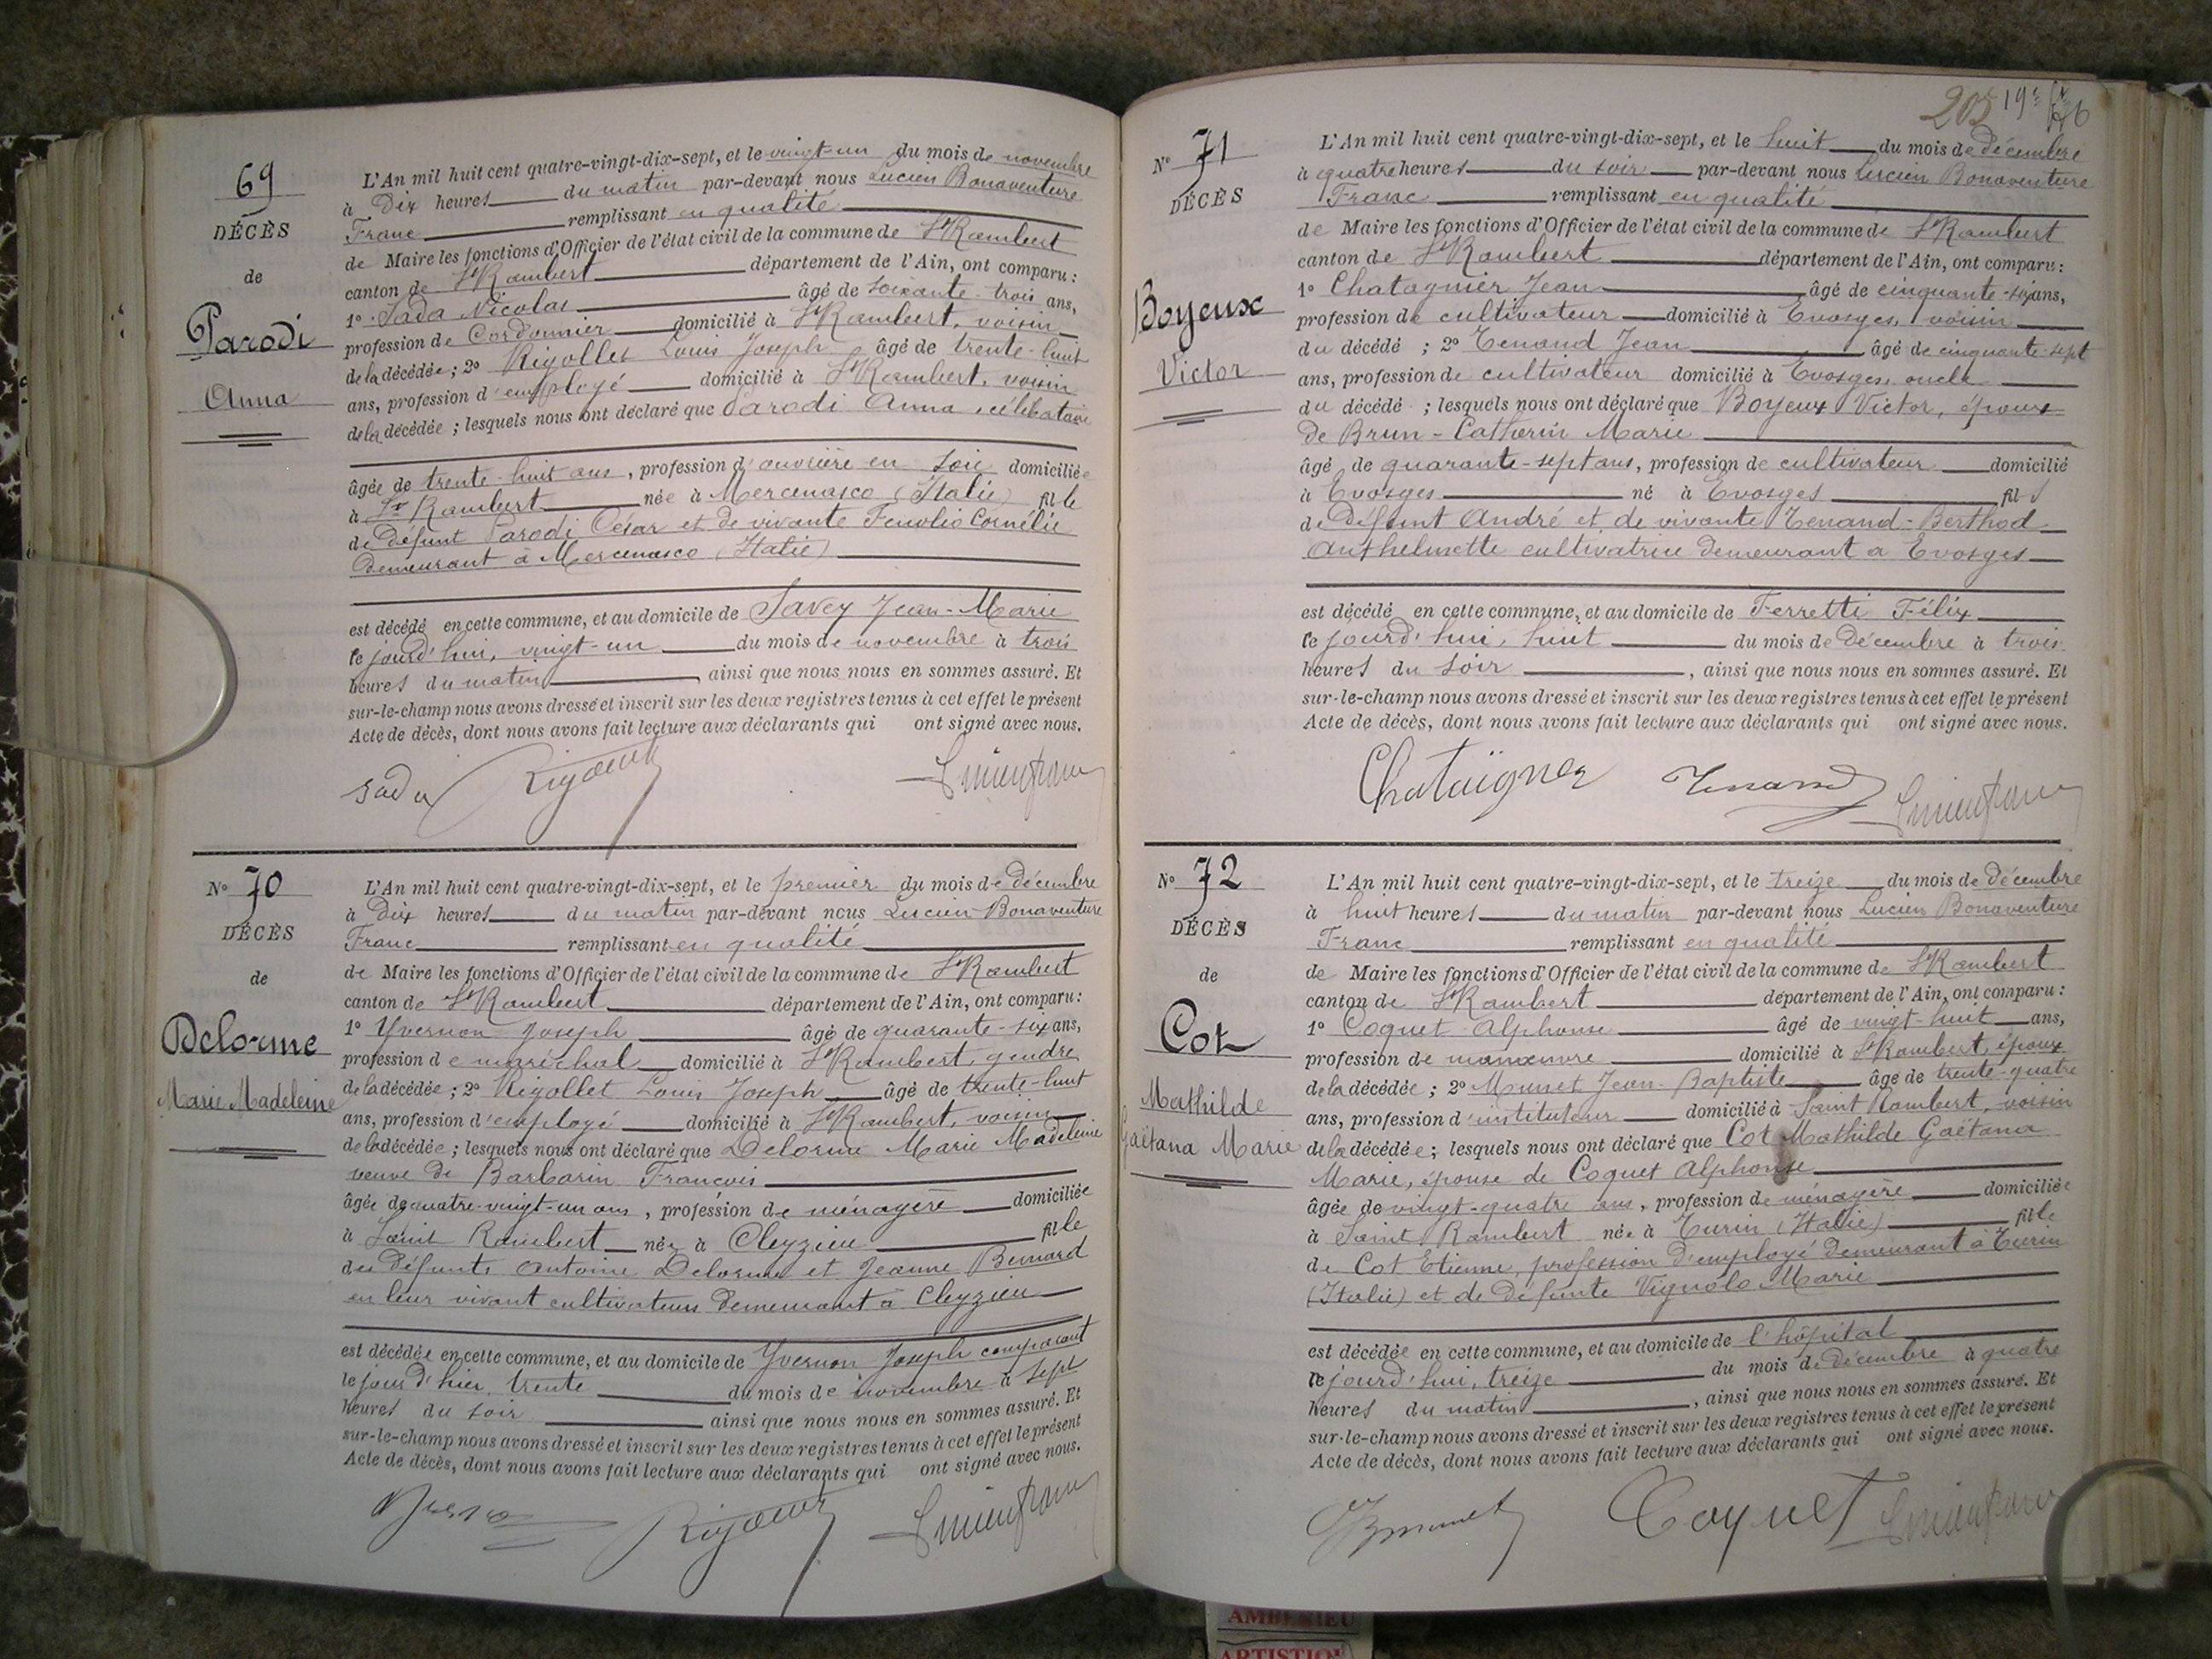 69
DÉCÈS
de
Parodi
Anna
L'An mil huit cent quatre-vingt-dix-sept, et le vingt-un du mois de novembre
à Dix heures du matin par-devant nous Lucien Bonaventure
Franc remplissant en qualité
de Maire les fonctions d'Officier de l'état civil de la commune de St Rambert
canton de St Rambert département de l'Ain, ont comparu :
1° Sada Nicolas âgé de soixante-trois ans,
profession de Cordonnier domicilié à St Rambert, voisin
de la décédée ; 2° Rigollet Louis Joseph âgé de trente-huit
ans, profession d'employé domicilié à St Rambert, voisin
de la décédée ; lesquels nous ont déclaré que Parodi Anna, célibataire
âgée de trente-huit ans, profession d'ouvrière en soie domiciliée
à St Rambert née à Mercenasco (Italie) fille
de défunt Parodi César et de vivante Cornélie
demeurant à Mercenasco (Italie)
est décédé en cette commune, et au domicile de Savey Jean-Marie
le jourd'hui, vingt-un du mois de novembre à trois
heures du matin, ainsi que nous nous en sommes assuré. Et
sur-le-champ nous avons dressé et inscrit sur les deux registres tenus à cet effet le présent
Acte de décès, dont nous avons fait lecture aux déclarants qui ont signé avec nous.
Sada Rigollet Lucien Franc
N° 70
DÉCÈS
de
Delorme
Marie Madeleine
L'An mil huit cent quatre-vingt-dix-sept, et le premier du mois de décembre
à Dix heures du matin par-devant nous Lucien Bonaventure
Franc remplissant en qualité
de Maire les fonctions d'Officier de l'état civil de la commune de St Rambert
canton de St Rambert département de l'Ain, ont comparu :
1° Yvernon Joseph âgé de quarante-six ans,
profession de maréchal domicilié à St Rambert, gendre
de la décédée ; 2° Rigollet Louis Joseph âgé de trente-huit
ans, profession d'employé domicilié à St Rambert, voisin
de la décédée ; lesquels nous ont déclaré que Delorme Marie Madeleine
veuve de Barbarin François
âgée de quatre-vingt-un ans, profession de ménagère domiciliée
à Saint Rambert née à Cleyzieu fille
des défunts Antoine Delorme et Jeanne Bernard
en leur vivant cultivateurs demeurant à Cleyzieu
est décédée en cette commune, et au domicile de Yvernon Joseph comparant
le jour d'hier, trente du mois de novembre à sept
heures du soir ainsi que nous nous en sommes assuré. Et
sur-le-champ nous avons dressé et inscrit sur les deux registres tenus à cet effet le présent
Acte de décès, dont nous avons fait lecture aux déclarants qui ont signé avec nous.
Rigollet Lucien Franc
205 19e
N° 71
DÉCÈS
Boyeux
Victor
L'An mil huit cent quatre-vingt-dix-sept, et le huit du mois de décembre
à quatre heures du soir par-devant nous Lucien Bonaventure
Franc remplissant en qualité
de Maire les fonctions d'Officier de l'état civil de la commune de St Rambert
canton de St Rambert département de l'Ain, ont comparu :
1° Chatagnier Jean âgé de cinquante-six ans,
profession de cultivateur domicilié à Evosges, voisin
du décédé ; 2° Tenand Jean âgé de cinquante-sept
ans, profession de cultivateur domicilié à Evosges, oncle
du décédé ; lesquels nous ont déclaré que Boyeux Victor, époux
de Brun-Catherin Marie
âgé de quarante-sept ans, profession de cultivateur domicilié
à Evosges né à Evosges fils
de défunt André et de vivante Tenand-Berthod
Anthelmette cultivatrice demeurant à Evosges
est décédé en cette commune, et au domicile de Ferretti Félix
le jourd'hui, huit du mois de décembre à trois
heures du soir, ainsi que nous nous en sommes assuré. Et
sur-le-champ nous avons dressé et inscrit sur les deux registres tenus à cet effet le présent
Acte de décès, dont nous avons fait lecture aux déclarants qui ont signé avec nous.
Chataigner Tenand Lucien Franc
N° 72
DÉCÈS
de
Cot
Mathilde
Gaëtana Marie
L'An mil huit cent quatre-vingt-dix-sept, et le treize du mois de décembre
à huit heures du matin par-devant nous Lucien Bonaventure
Franc remplissant en qualité
de Maire les fonctions d'Officier de l'état civil de la commune de St Rambert
canton de St Rambert département de l'Ain, ont comparu :
1° Coquet Alphonse âgé de vingt-huit ans,
profession de manœuvre domicilié à St Rambert, époux
de la décédée ; 2° Munet Jean-Baptiste âgé de trente-quatre
ans, profession d'instituteur domicilié à Saint Rambert, voisin
de la décédée ; lesquels nous ont déclaré que Cot Mathilde Gaëtana
Marie, épouse de Coquet Alphonse
âgée de vingt-quatre ans, profession de ménagère domiciliée
à Saint Rambert née à Turin (Italie) fille
de Cot Etienne, profession d'employé demeurant à Turin
(Italie) et de défunte Vignolo Marie
est décédée en cette commune, et au domicile de l'hôpital
le jourd'hui, treize du mois de décembre à quatre
heures du matin, ainsi que nous nous en sommes assuré. Et
sur-le-champ nous avons dressé et inscrit sur les deux registres tenus à cet effet le présent
Acte de décès, dont nous avons fait lecture aux déclarants qui ont signé avec nous.
Coquet Lucien Franc
AMBERIEU
ARTISTIQUE